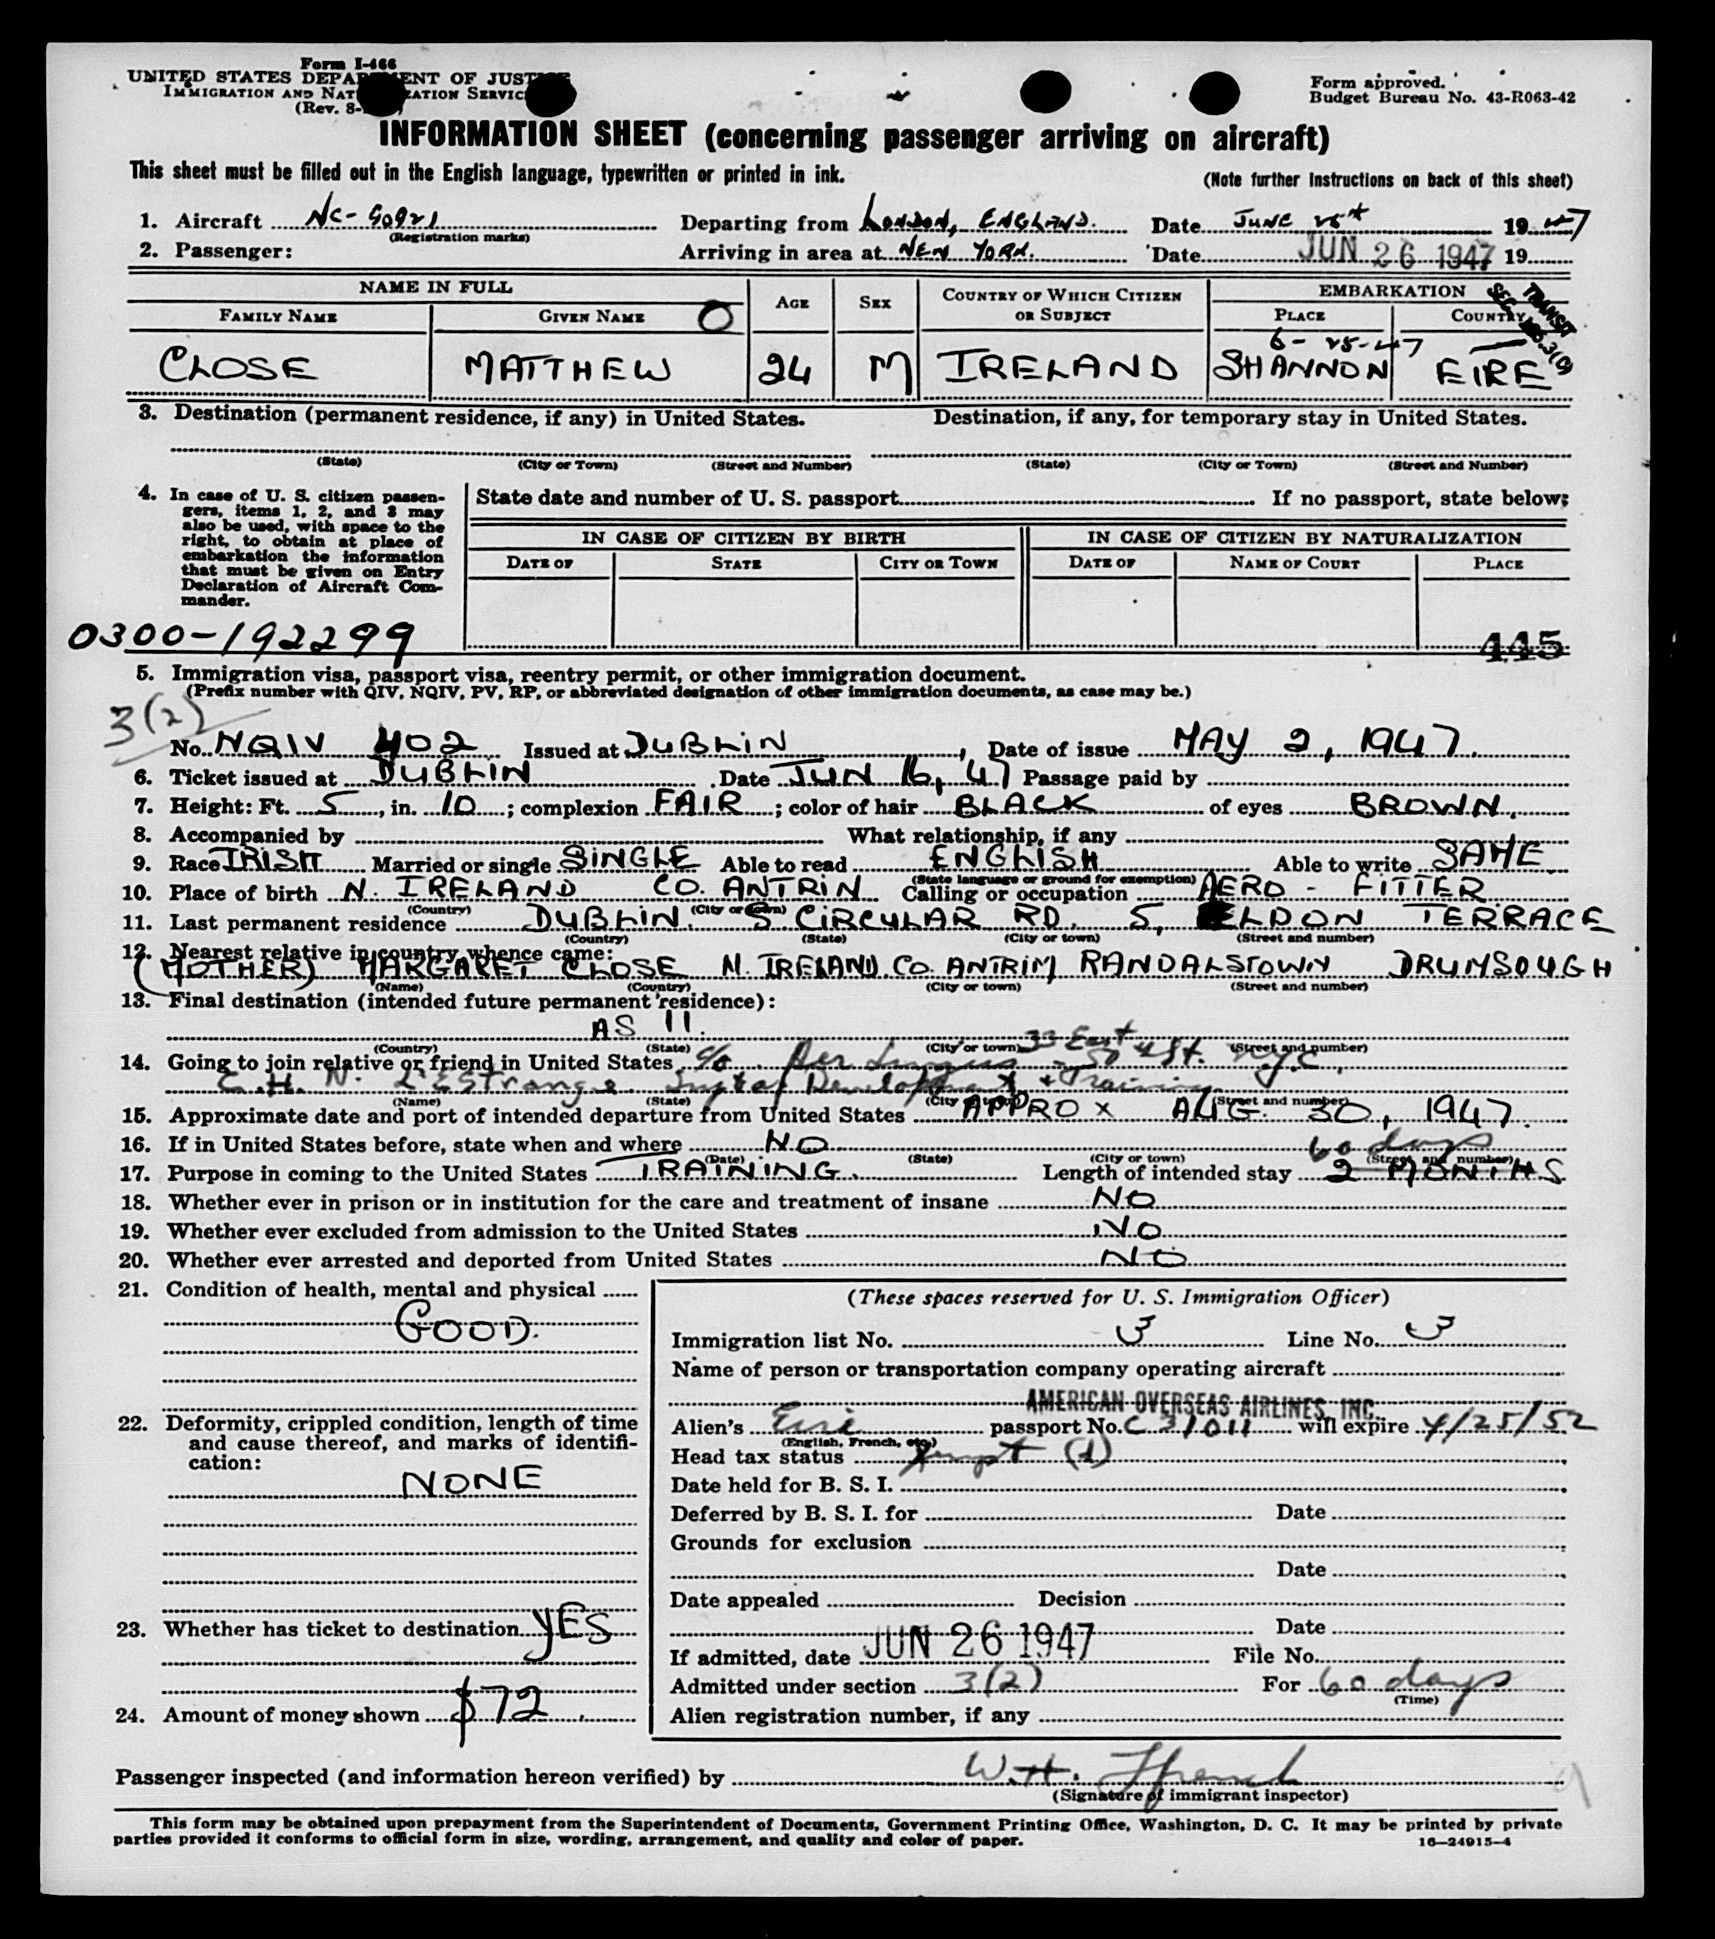 Form I-466
UNITED STATES DEPARTMENT OF JUSTICE
IMMIGRATION AND NATURALIZATION SERVICE
(Rev. 8-
Form approved.
Budget Bureau No. 43-R063-42
INFORMATION SHEET (concerning passenger arriving on aircraft)
This sheet must be filled out in the English language, typewritten or printed in ink.
(Note further instructions on back of this sheet)
1. Aircraft NC-90921 Departing from LONDON, ENGLAND. Date JUNE 25th 1947
(Registration marks)
2. Passenger: Arriving in area at NEW YORK. Date JUN 26 1947 19
NAME IN FULL AGE SEX COUNTRY OF WHICH CITIZEN OR SUBJECT EMBARKATION
FAMILY NAME GIVEN NAME O PLACE COUNTRY
TRANSIT
6-25-47
CLOSE MATTHEW 24 M IRELAND SHANNON EIRE
3. Destination (permanent residence, if any) in United States. Destination, if any, for temporary stay in United States.
(State) (City or Town) (Street and Number) (State) (City or Town) (Street and Number)
4. In case of U. S. citizen passen-
gers, items 1, 2, and 3 may
also be used, with space to the
right, to obtain at place of
embarkation the information
that must be given on Entry
Declaration of Aircraft Com-
mander.
State date and number of U. S. passport If no passport, state below:
IN CASE OF CITIZEN BY BIRTH IN CASE OF CITIZEN BY NATURALIZATION
DATE OF STATE CITY OR TOWN DATE OF NAME OF COURT PLACE
0300-192299 445
5. Immigration visa, passport visa, reentry permit, or other immigration document.
(Prefix number with QIV, NQIV, PV, RP, or abbreviated designation of other immigration documents, as case may be.)
3(2)
No. NQIV 402 Issued at DUBLIN, Date of issue MAY 2, 1947.
6. Ticket issued at DUBLIN Date JUN 16, 47 Passage paid by
7. Height: Ft. 5, in. 10; complexion FAIR; color of hair BLACK of eyes BROWN.
8. Accompanied by What relationship, if any
9. Race IRISH Married or single SINGLE Able to read ENGLISH Able to write SAME
(State language or ground for exemption)
10. Place of birth N. IRELAND CO. ANTRIM Calling or occupation AERO - FITTER
(Country) (City or town)
11. Last permanent residence DUBLIN. S CIRCULAR RD. 5, ELDON TERRACE
(Country) (State) (City or town) (Street and number)
12. Nearest relative in country whence came:
(MOTHER) MARGARET CLOSE N. IRELAND CO. ANTRIM RANDALSTOWN DRUMSOUGH
(Name) (Country) (City or town) (Street and number)
13. Final destination (intended future permanent residence):
AS 11.
(Country) (State) (City or town) (Street and number)
33 East
14. Going to join relative or friend in United States c/o Aer Lingus - 50th St. N.Y.C.
C.H. N. L'Estrange Development & Training
(Name) (State) (City or town) (Street and number)
15. Approximate date and port of intended departure from United States APPROX AUG. 30, 1947.
16. If in United States before, state when and where NO
(Date) (State) (City or town) (Street and number)
60 days
17. Purpose in coming to the United States TRAINING. Length of intended stay 2 MONTHS
18. Whether ever in prison or in institution for the care and treatment of insane NO
19. Whether ever excluded from admission to the United States NO
20. Whether ever arrested and deported from United States NO
21. Condition of health, mental and physical
GOOD.
22. Deformity, crippled condition, length of time
and cause thereof, and marks of identifi-
cation:
NONE
23. Whether has ticket to destination YES
24. Amount of money shown $72
(These spaces reserved for U. S. Immigration Officer)
Immigration list No. 3 Line No. 3
Name of person or transportation company operating aircraft
AMERICAN OVERSEAS AIRLINES, INC.
Alien's Eire passport No. C 31011 will expire 4/25/52
(English, French, etc.)
Head tax status Exempt (d)
Date held for B. S. I.
Deferred by B. S. I. for Date
Grounds for exclusion
Date
Date appealed Decision
Date
If admitted, date JUN 26 1947 File No.
Admitted under section 3(2) For 60 days
(Time)
Alien registration number, if any
Passenger inspected (and information hereon verified) by W.H. Ffrench
(Signature of immigrant inspector)
This form may be obtained upon prepayment from the Superintendent of Documents, Government Printing Office, Washington, D. C. It may be printed by private
parties provided it conforms to official form in size, wording, arrangement, and quality and color of paper. 16—24915-4